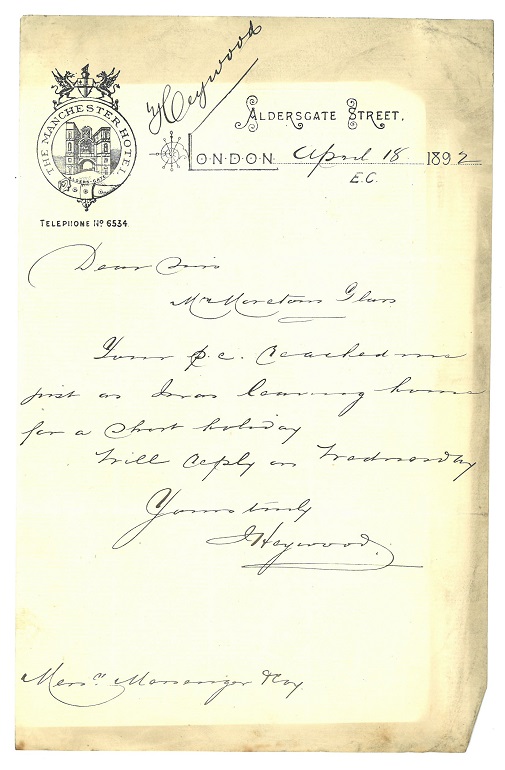 Heywood
THE MANCHESTER HOTEL
ALDERSGATE
ALDERSGATE STREET,
LONDON April 18 1892
E.C.
TELEPHONE No 6534
Dear Sirs
Mr Moretons Glass
Your p.c. reached me
just as I was leaving home
for a short holiday
Will reply on Wednesday
Yours truly
J Heywood.
Messrs Messenger & Coy